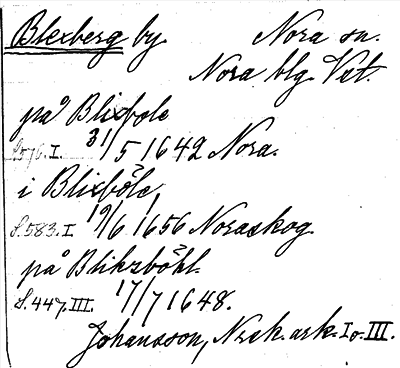 Blexberg by. Nora sn.
Nora blg. Vet.
på Blixbole
S.576.I. 31/5 1642 Nora.
i Blixböle
S.583.I 19/6 1656 Noraskog.
på Blikzböhl.
S.447.III. 17/7 1648.
Johansson, Nrsk. ark. I o. III.